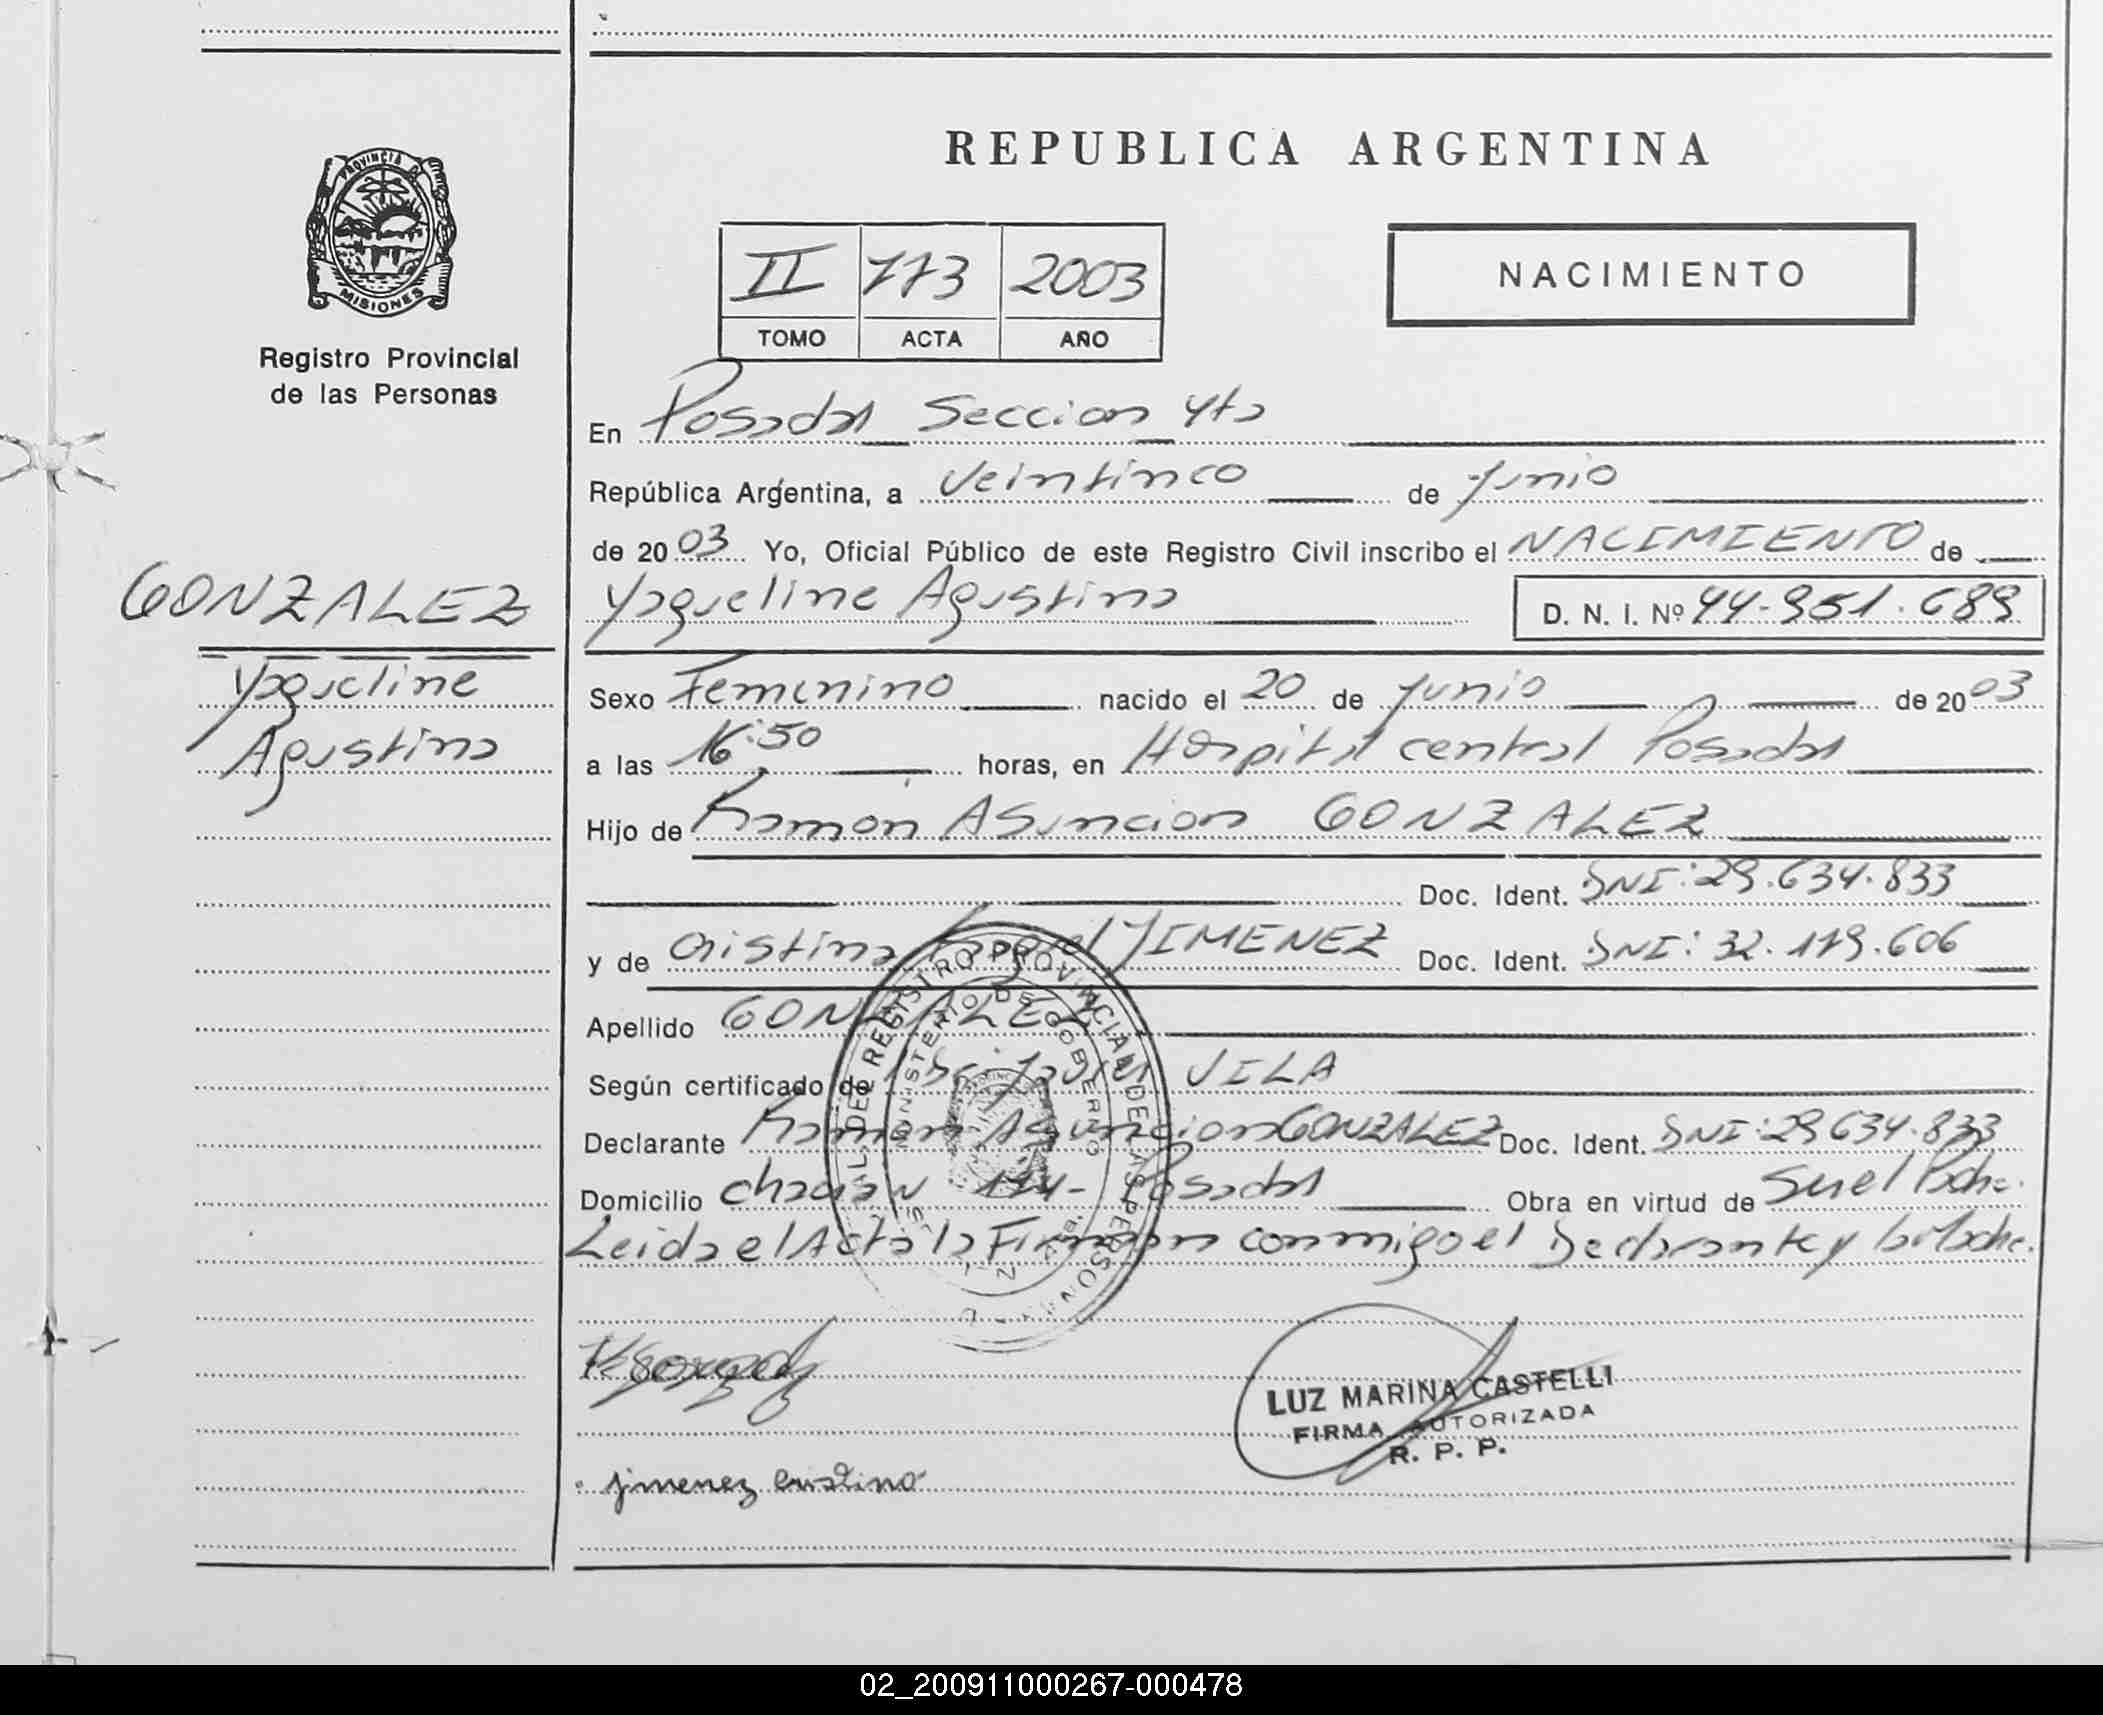 REPUBLICA ARGENTINA
PROVINCIA DE
MISIONES
Registro Provincial
de las Personas
II 773 2003
TOMO ACTA AÑO
NACIMIENTO
En Posadas Seccion 4ta
República Argentina, a Veintinco de Junio
de 2003 Yo, Oficial Público de este Registro Civil inscribo el NACIMIENTO de
GONZALEZ
Yaqueline
Agustina
Yaqueline Agustina D. N. I. Nº 44-951.689
Sexo Femenino nacido el 20 de Junio de 2003
a las 16:50 horas, en Hospital central Posadas
Hijo de Ramón Asuncion GONZALEZ
Doc. Ident. DNI: 29.634.833
y de Cristina Raquel JIMENEZ Doc. Ident. DNI: 32.179.606
Apellido GONZALEZ
Según certificado de VILA
Declarante Ramon Asuncion GONZALEZ Doc. Ident. DNI: 29634.833
Domicilio Posadas Obra en virtud de Ser el Padre.
Leida el Acta la Firman conmigo el Declarante y la Madre.
REGISTRO PROVINCIAL DE LAS PERSONAS
MINISTERIO DE GOBIERNO
LUZ MARINA CASTELLI
FIRMA AUTORIZADA
R. P. P.
Jimenez Cristina
02_200911000267-000478